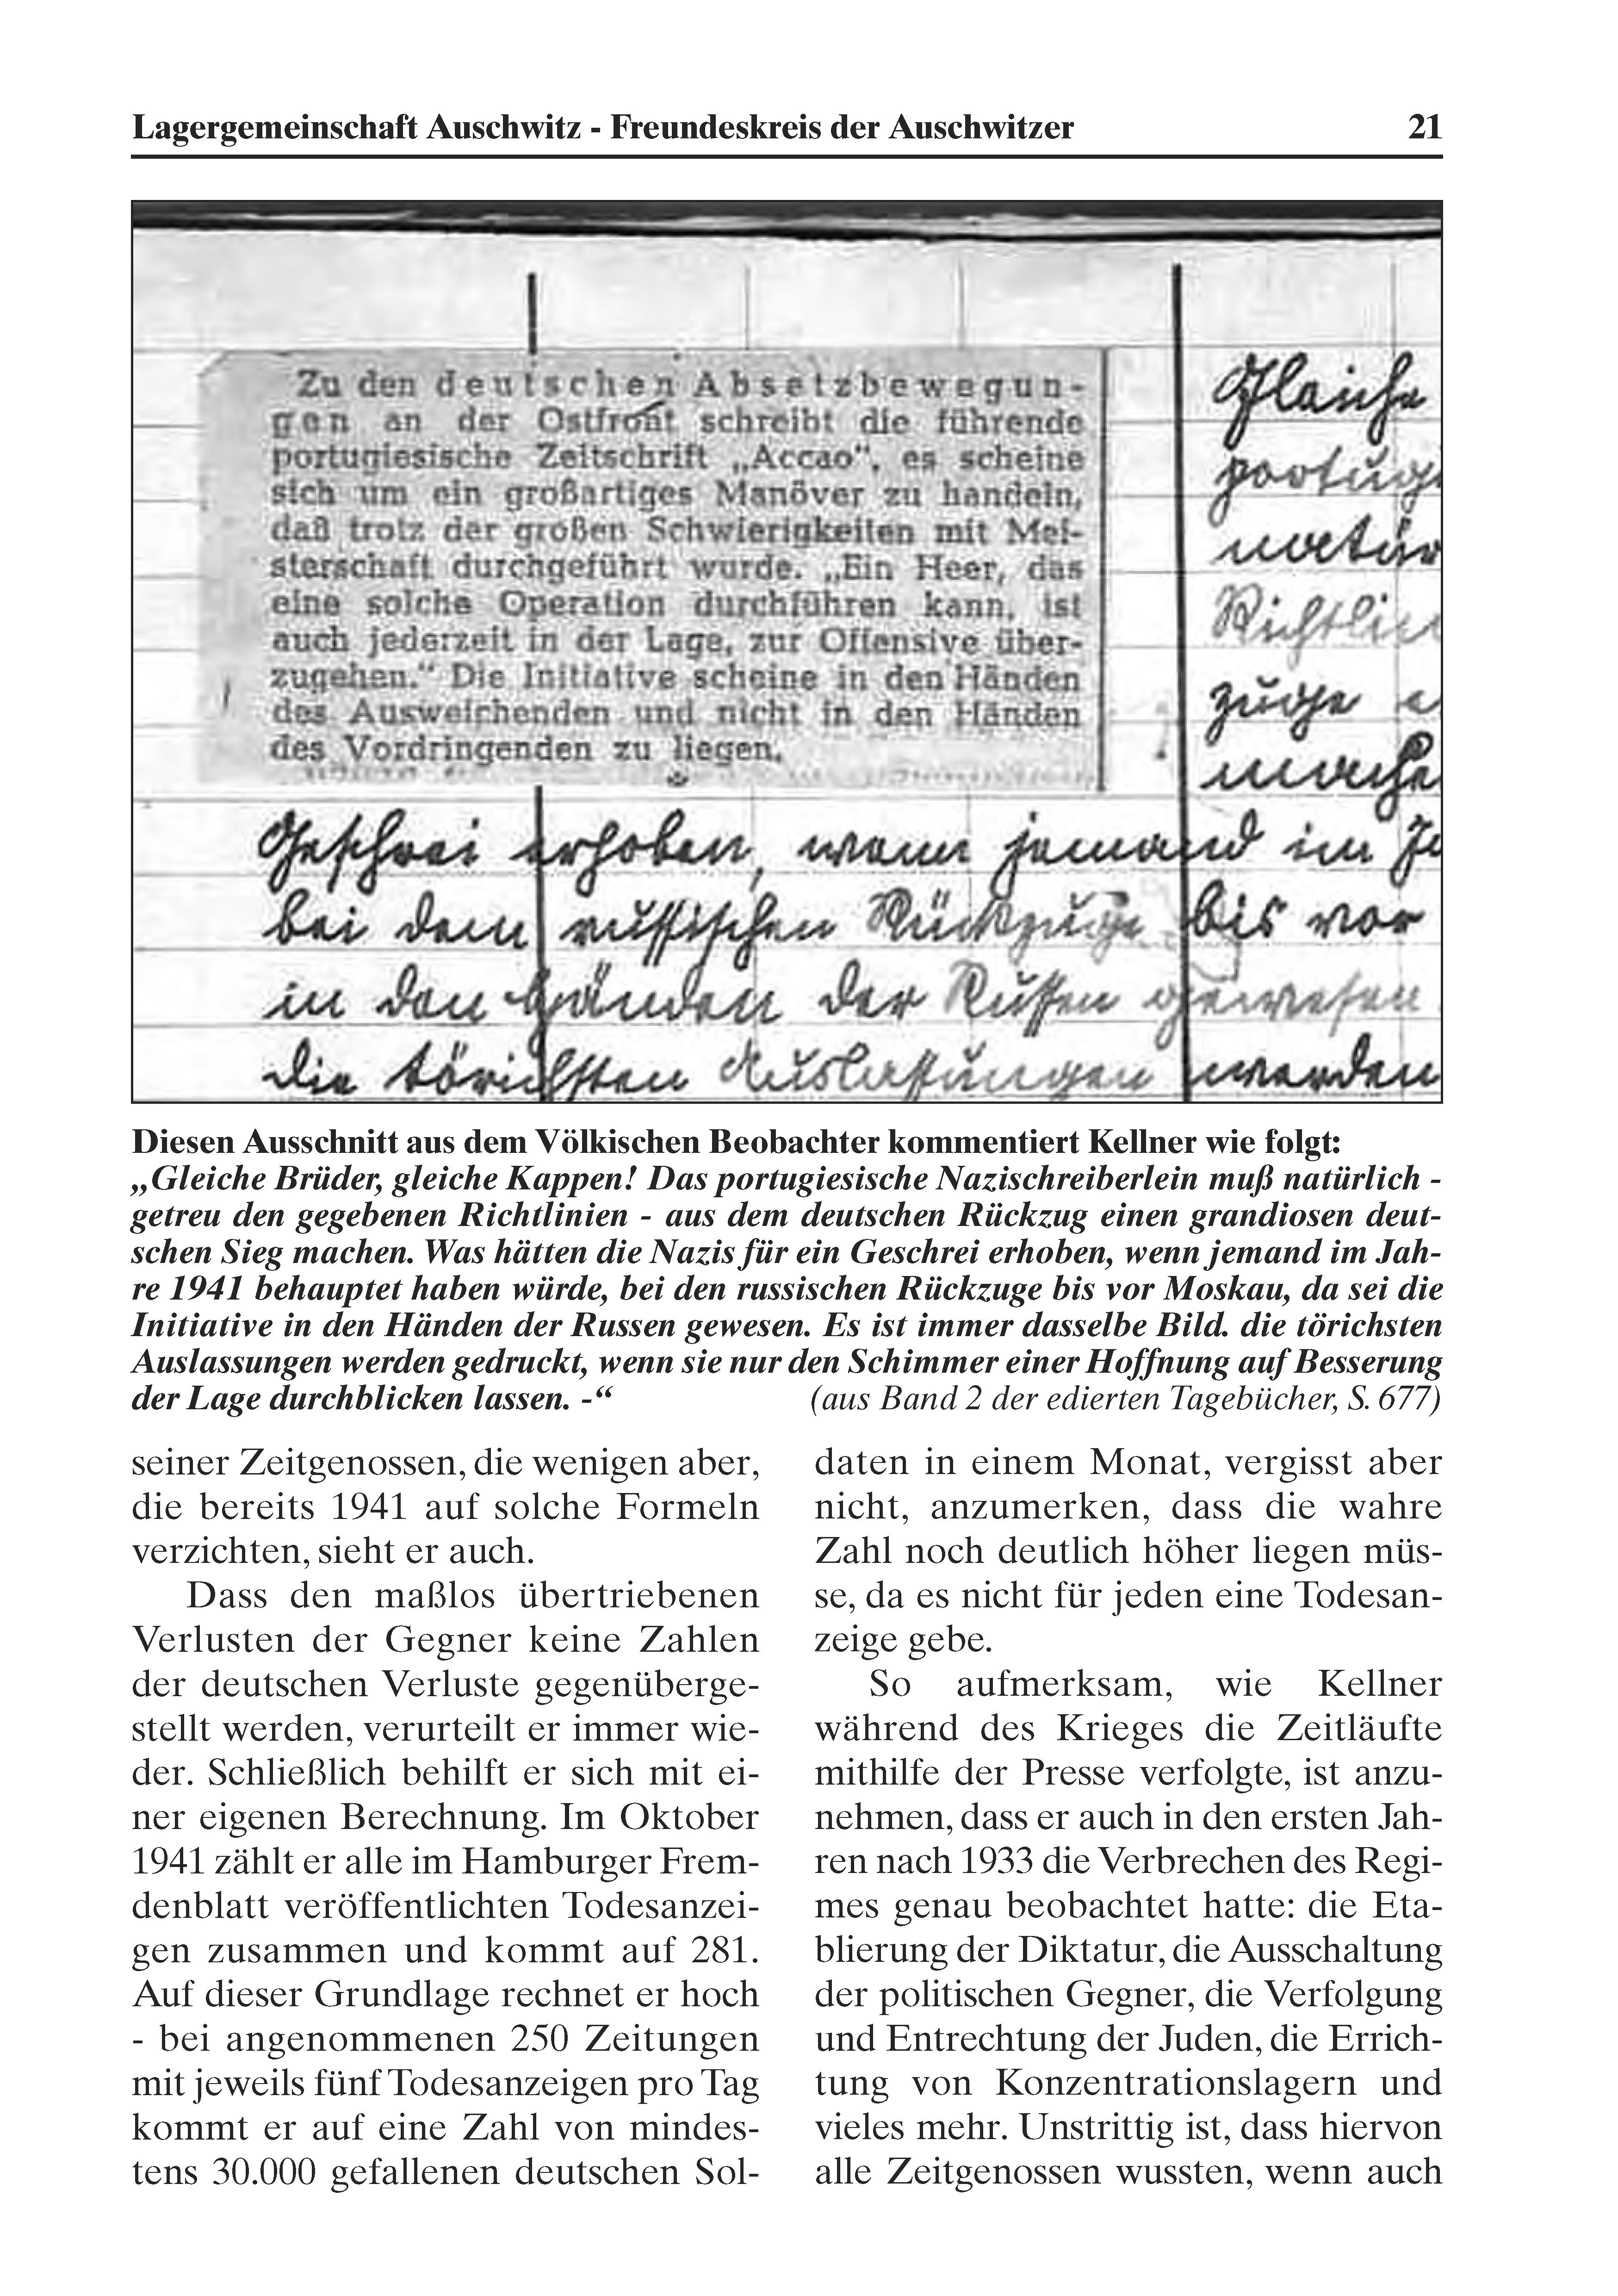 Lagergemeinschaft Auschwitz - Freundeskreis der Auschwitzer 21
Zu den deutschen Absetzbewegun-
gen an der Ostfront schreibt die führende
portugiesische Zeitschrift „Accao“, es scheine
sich um ein großartiges Manöver zu handeln,
daß trotz der großen Schwierigkeiten mit Mei-
sterschaft durchgeführt wurde. „Ein Heer, das
eine solche Operation durchführen kann, ist
auch jederzeit in der Lage, zur Offensive über-
zugehen.“ Die Initiative scheine in den Händen
des Ausweichenden und nicht in den Händen
des Vordringenden zu liegen.
Gleiche
portugi
natür
Richtlin
zuge
mache
Geschrei erhoben, wenn jemand im Ja
bei dem russischen Rückzuge bis vor
in den Händen der Russen gewesen
die törichsten Auslassungen werden
Diesen Ausschnitt aus dem Völkischen Beobachter kommentiert Kellner wie folgt:
„Gleiche Brüder, gleiche Kappen! Das portugiesische Nazischreiberlein muß natürlich -
getreu den gegebenen Richtlinien - aus dem deutschen Rückzug einen grandiosen deut-
schen Sieg machen. Was hätten die Nazis für ein Geschrei erhoben, wenn jemand im Jah-
re 1941 behauptet haben würde, bei den russischen Rückzuge bis vor Moskau, da sei die
Initiative in den Händen der Russen gewesen. Es ist immer dasselbe Bild. die törichsten
Auslassungen werden gedruckt, wenn sie nur den Schimmer einer Hoffnung auf Besserung
der Lage durchblicken lassen. -“ (aus Band 2 der edierten Tagebücher, S. 677)
seiner Zeitgenossen, die wenigen aber,
die bereits 1941 auf solche Formeln
verzichten, sieht er auch.
Dass den maßlos übertriebenen
Verlusten der Gegner keine Zahlen
der deutschen Verluste gegenüberge-
stellt werden, verurteilt er immer wie-
der. Schließlich behilft er sich mit ei-
ner eigenen Berechnung. Im Oktober
1941 zählt er alle im Hamburger Frem-
denblatt veröffentlichten Todesanzei-
gen zusammen und kommt auf 281.
Auf dieser Grundlage rechnet er hoch
- bei angenommenen 250 Zeitungen
mit jeweils fünf Todesanzeigen pro Tag
kommt er auf eine Zahl von mindes-
tens 30.000 gefallenen deutschen Sol-
daten in einem Monat, vergisst aber
nicht, anzumerken, dass die wahre
Zahl noch deutlich höher liegen müs-
se, da es nicht für jeden eine Todesan-
zeige gebe.
So aufmerksam, wie Kellner
während des Krieges die Zeitläufte
mithilfe der Presse verfolgte, ist anzu-
nehmen, dass er auch in den ersten Jah-
ren nach 1933 die Verbrechen des Regi-
mes genau beobachtet hatte: die Eta-
blierung der Diktatur, die Ausschaltung
der politischen Gegner, die Verfolgung
und Entrechtung der Juden, die Errich-
tung von Konzentrationslagern und
vieles mehr. Unstrittig ist, dass hiervon
alle Zeitgenossen wussten, wenn auch